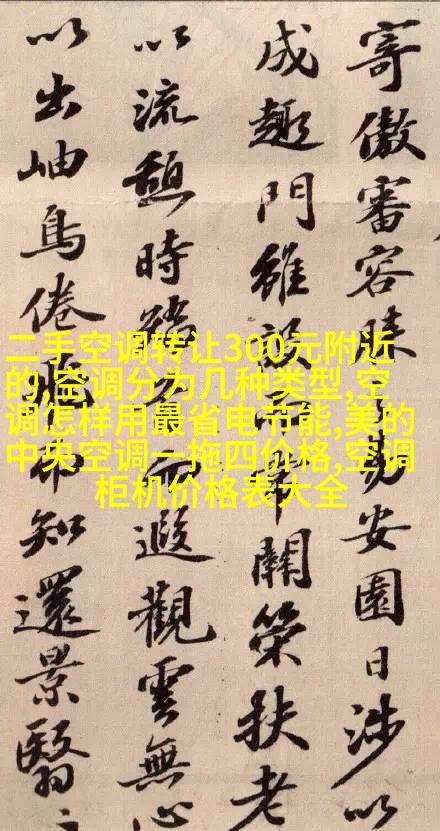 寄傲審容膝之易安園日涉以
成趣門雖設而常關策扶老
以流憩時矯首而遐觀雲無心
以出岫鳥倦飛而知還景翳
二手空调转让300元附近
的,空调分为几种类型,空
调怎样用最省电节能,美的
中央空调一拖四价格,空调
柜机价格表大全